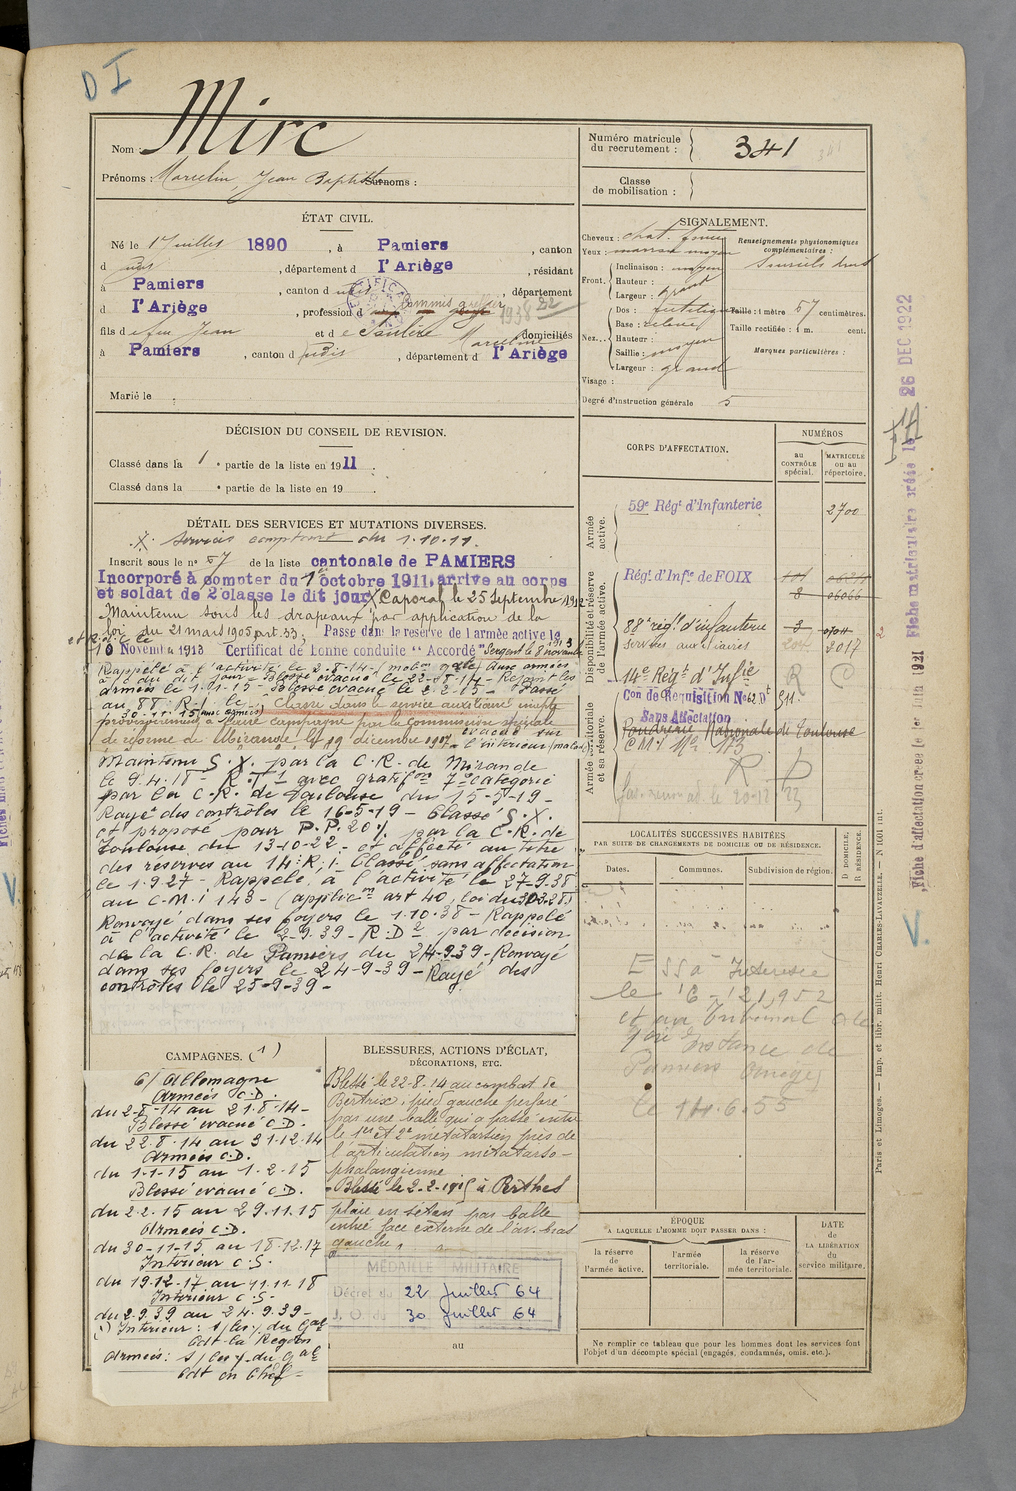 D I
Nom : Mirc
Prénoms : Marcelin, Jean Baptiste Surnoms :
ÉTAT CIVIL.
Né le 1 Juillet 1890, à Pamiers, canton
d dudit, département d l'Ariège, résidant
à Pamiers, canton d udit, département
d l'Ariège, profession d Commis greffier
fils d e feu Jean et d e Marceline domiciliés
à Pamiers, canton d judis, département d l'Ariège
Marié le :
DÉCISION DU CONSEIL DE REVISION.
Classé dans la 1 e partie de la liste en 1911.
Classé dans la e partie de la liste en 19
DÉTAIL DES SERVICES ET MUTATIONS DIVERSES.
.X. Services comptant du 1.10.11.
Inscrit sous le n° 57 de la liste cantonale de PAMIERS
Incorporé à compter du 1er octobre 1911, arrive au corps
et soldat de 2e classe le dit jour, Caporal le 25 Septembre 1912
Maintenu sous les drapeaux par application de la
loi du 21 mars 1905 art. 33; Passé dans la réserve de l'armée active le
10 Novembre 1913 Certificat de bonne conduite "Accordé" Sergent le 8 novembre 1913
Rappelé à l'activité le 2-8-14 (mobon gale) Aux armées
à c du dit jour - Blessé évacué le 22-8-14 - Rejoint les
armées le 1-1-15 - Blessé évacué le 2-2-15 - Passé
au 88e R.I. le
30-11-15 (aux armées) Classé dans le service auxiliaire inapte
provisoirement à faire campagne par la Commission spéciale
de réforme de Mirande le 19 décembre 1917 évacué sur l'intérieur
Maintenu S.X. par la C.R. de Mirande
le 9.4.18 - R.T1 avec gratifon 7e Catégorie
par la C.R. de Toulouse du 15-5-19 -
Rayé des contrôles le 16-5-19 - Classé S.X.
et proposé pour P.P. 20% par la C.R. de
Toulouse du 13-10-22 - et affecté au titre
des réserves au 14e R.I. Classé sans affectation
le 1.9.27 - Rappelé à l'activité le 27-9-38
au C.M.I 143 - (applicon art 40, loi du
Renvoyé dans ses foyers le 1-10-38 - Rappelé
à l'activité le 2-9-39 - R.D2 par décision
de la C.R. de Pamiers du 24-9-39 - Renvoyé
dans ses foyers le 24-9-39 - Rayé des
contrôles le 25-9-39 -
CAMPAGNES. (1)
C/ Allemagne
Armées C.D.
du 2-8-14 au 21-8-14 -
Blessé évacué C.D.
du 22.8.14 au 31.12.14
Armées C.D.
du 1-1-15 au 1-2-15
Blessé évacué C.D.
du 2.2.15 au 29.11.15
Armées C.D.
du 30-11-15 au 18.12.17
Intérieur C.S.
du 19.12.17 au 11.11.18
Intérieur C.S.
du 2.9.39 au 24.9.39 -
(1) Intérieur : s/les y. du Gal
Cdt la Région
Armées : s/les y. du Gal
Cdt en Chef -
BLESSURES, ACTIONS D'ÉCLAT,
DÉCORATIONS, ETC.
Blessé le 22-8-14 au combat de
Bertrix : pied gauche perforé
par une balle qui a passé entre
le 1er et 2e métatarsien près de
l'articulation métatarso-
phalangienne
- Blessé le 2-2-1915 à Perthes
plaie en séton par balle
entrée face externe de l'av. bras
gauche.
MÉDAILLE MILITAIRE
Décret du 22 Juillet 64
J. O. du 30 juillet 64
au
Numéro matricule
du recrutement : 341
Classe
de mobilisation :
SIGNALEMENT.
Cheveux : chat. foncé
Yeux : marron moyen
Front. Inclinaison : moyen
Hauteur :
Largeur : grand
Nez... Dos :
Base : relevé
Hauteur :
Saillie : moyen
Largeur : grand
Visage :
Degré d'instruction générale 5
Renseignements physionomiques
complémentaires :
Sourcils droits
Taille : 1 mètre 57 centimètres.
Taille rectifiée : 1 m. cent.
Marques particulières :
CORPS D'AFFECTATION.
NUMÉROS
au
CONTRÔLE
spécial.
MATRICULE
ou au
répertoire.
Armée
active.
59e Régt d'Infanterie 2700
Disponibilité et réserve
de l'armée active.
Régt d'Infie de FOIX
8 06066
88e régt d'infanterie 3
Services auxiliaires 2017
14e Régt d'Infie R C
Armée territoriale
et sa réserve.
Con de Réquisition
Sans Affectation
Poudrerie Nationale de Toulouse
R D
LOCALITÉS SUCCESSIVES HABITÉES
PAR SUITE DE CHANGEMENTS DE DOMICILE OU DE RÉSIDENCE.
Dates.
Communes.
Subdivision de région.
D DOMICILE,
R RÉSIDENCE.
ESS à Intéressé
le
et au Tribunal de
1ère Instance de
Pamiers Ariège
le 14.6.55
ÉPOQUE
À LAQUELLE L'HOMME DOIT PASSER DANS :
la réserve
de l'armée active.
l'armée
territoriale.
la réserve
de l'ar-
mée territoriale.
DATE
de
LA LIBÉRATION
du
service militaire.
Ne remplir ce tableau que pour les hommes dont les services font
l'objet d'un décompte spécial (engagés, condamnés, omis, etc.).
Fiche matriculaire créée le 26 DEC 1922
Fiche d'affectation créée le 1er Juin 1921
V.
Paris et Limoges. — Imp. et libr. milit. Henri CHARLES-LAVAUZELLE. — N 1001 int